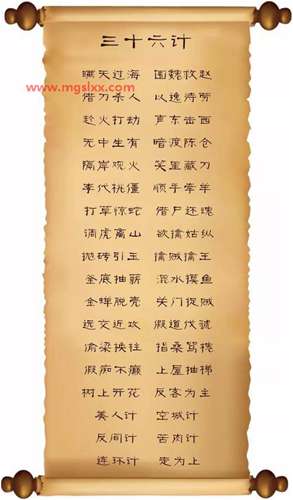 三十六计
瞒天过海 围魏救赵
www.mgslxx.com
借刀杀人 以逸待劳
趁火打劫 声东击西
无中生有 暗度陈仓
隔岸观火 笑里藏刀
李代桃僵 顺手牵羊
打草惊蛇 借尸还魂
调虎离山 欲擒姑纵
抛砖引玉 擒贼擒王
釜底抽薪 混水摸鱼
金蝉脱壳 关门捉贼
远交近攻 假道伐虢
偷梁换柱 指桑骂槐
假痴不癫 上屋抽梯
树上开花 反客为主
美人计 空城计
反间计 苦肉计
连环计 走为上